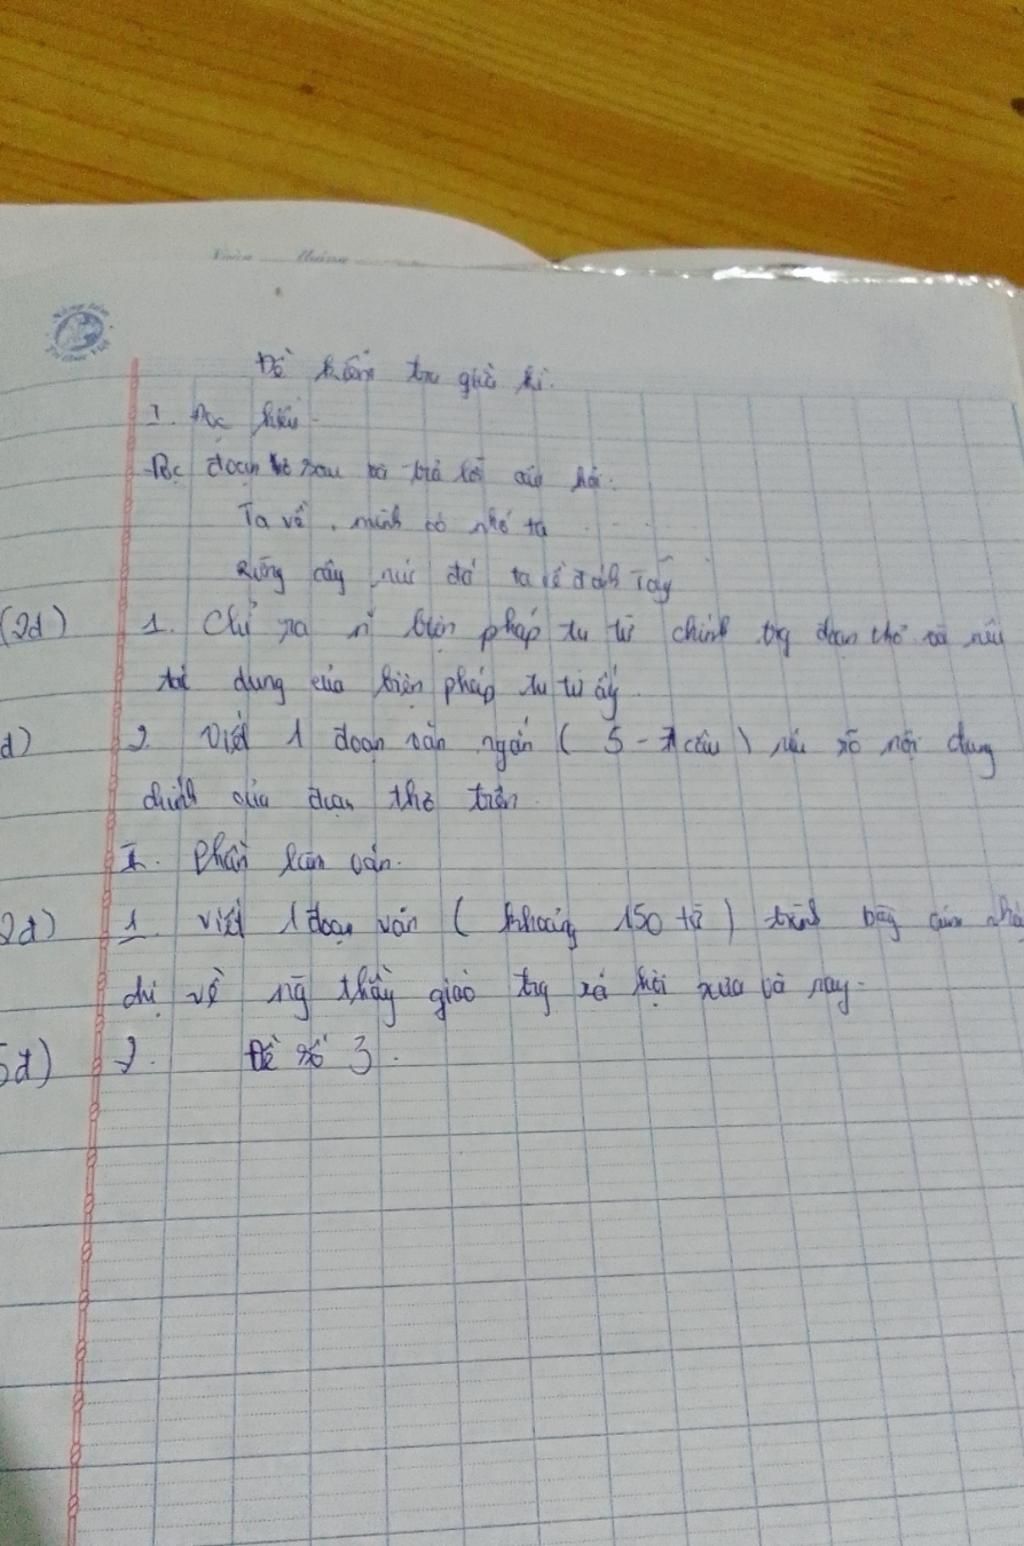 Đề kiểm tra giữa kì.
I. Đọc hiểu.
Đọc đoạn thơ sau và trả lời câu hỏi:
Ta về, mình có nhớ ta
Rừng cây núi đá ta về đánh Tây
(2đ) 1. Chỉ ra n~ biện pháp tu từ chính trg đoạn thơ và nêu
tác dụng của biện pháp tu từ ấy.
đ) 2. Viết 1 đoạn văn ngắn ( 5 - 7 câu ) nêu rõ nội dung
chính của đoạn thơ trên.
II. Phần làm văn.
2đ) 1. Viết 1 đoạn văn ( khoảng 150 từ ) trình bày cảm nhận
chị về ng thầy giáo trg xã hội xưa và nay.
5đ) 2. Đề số 3.